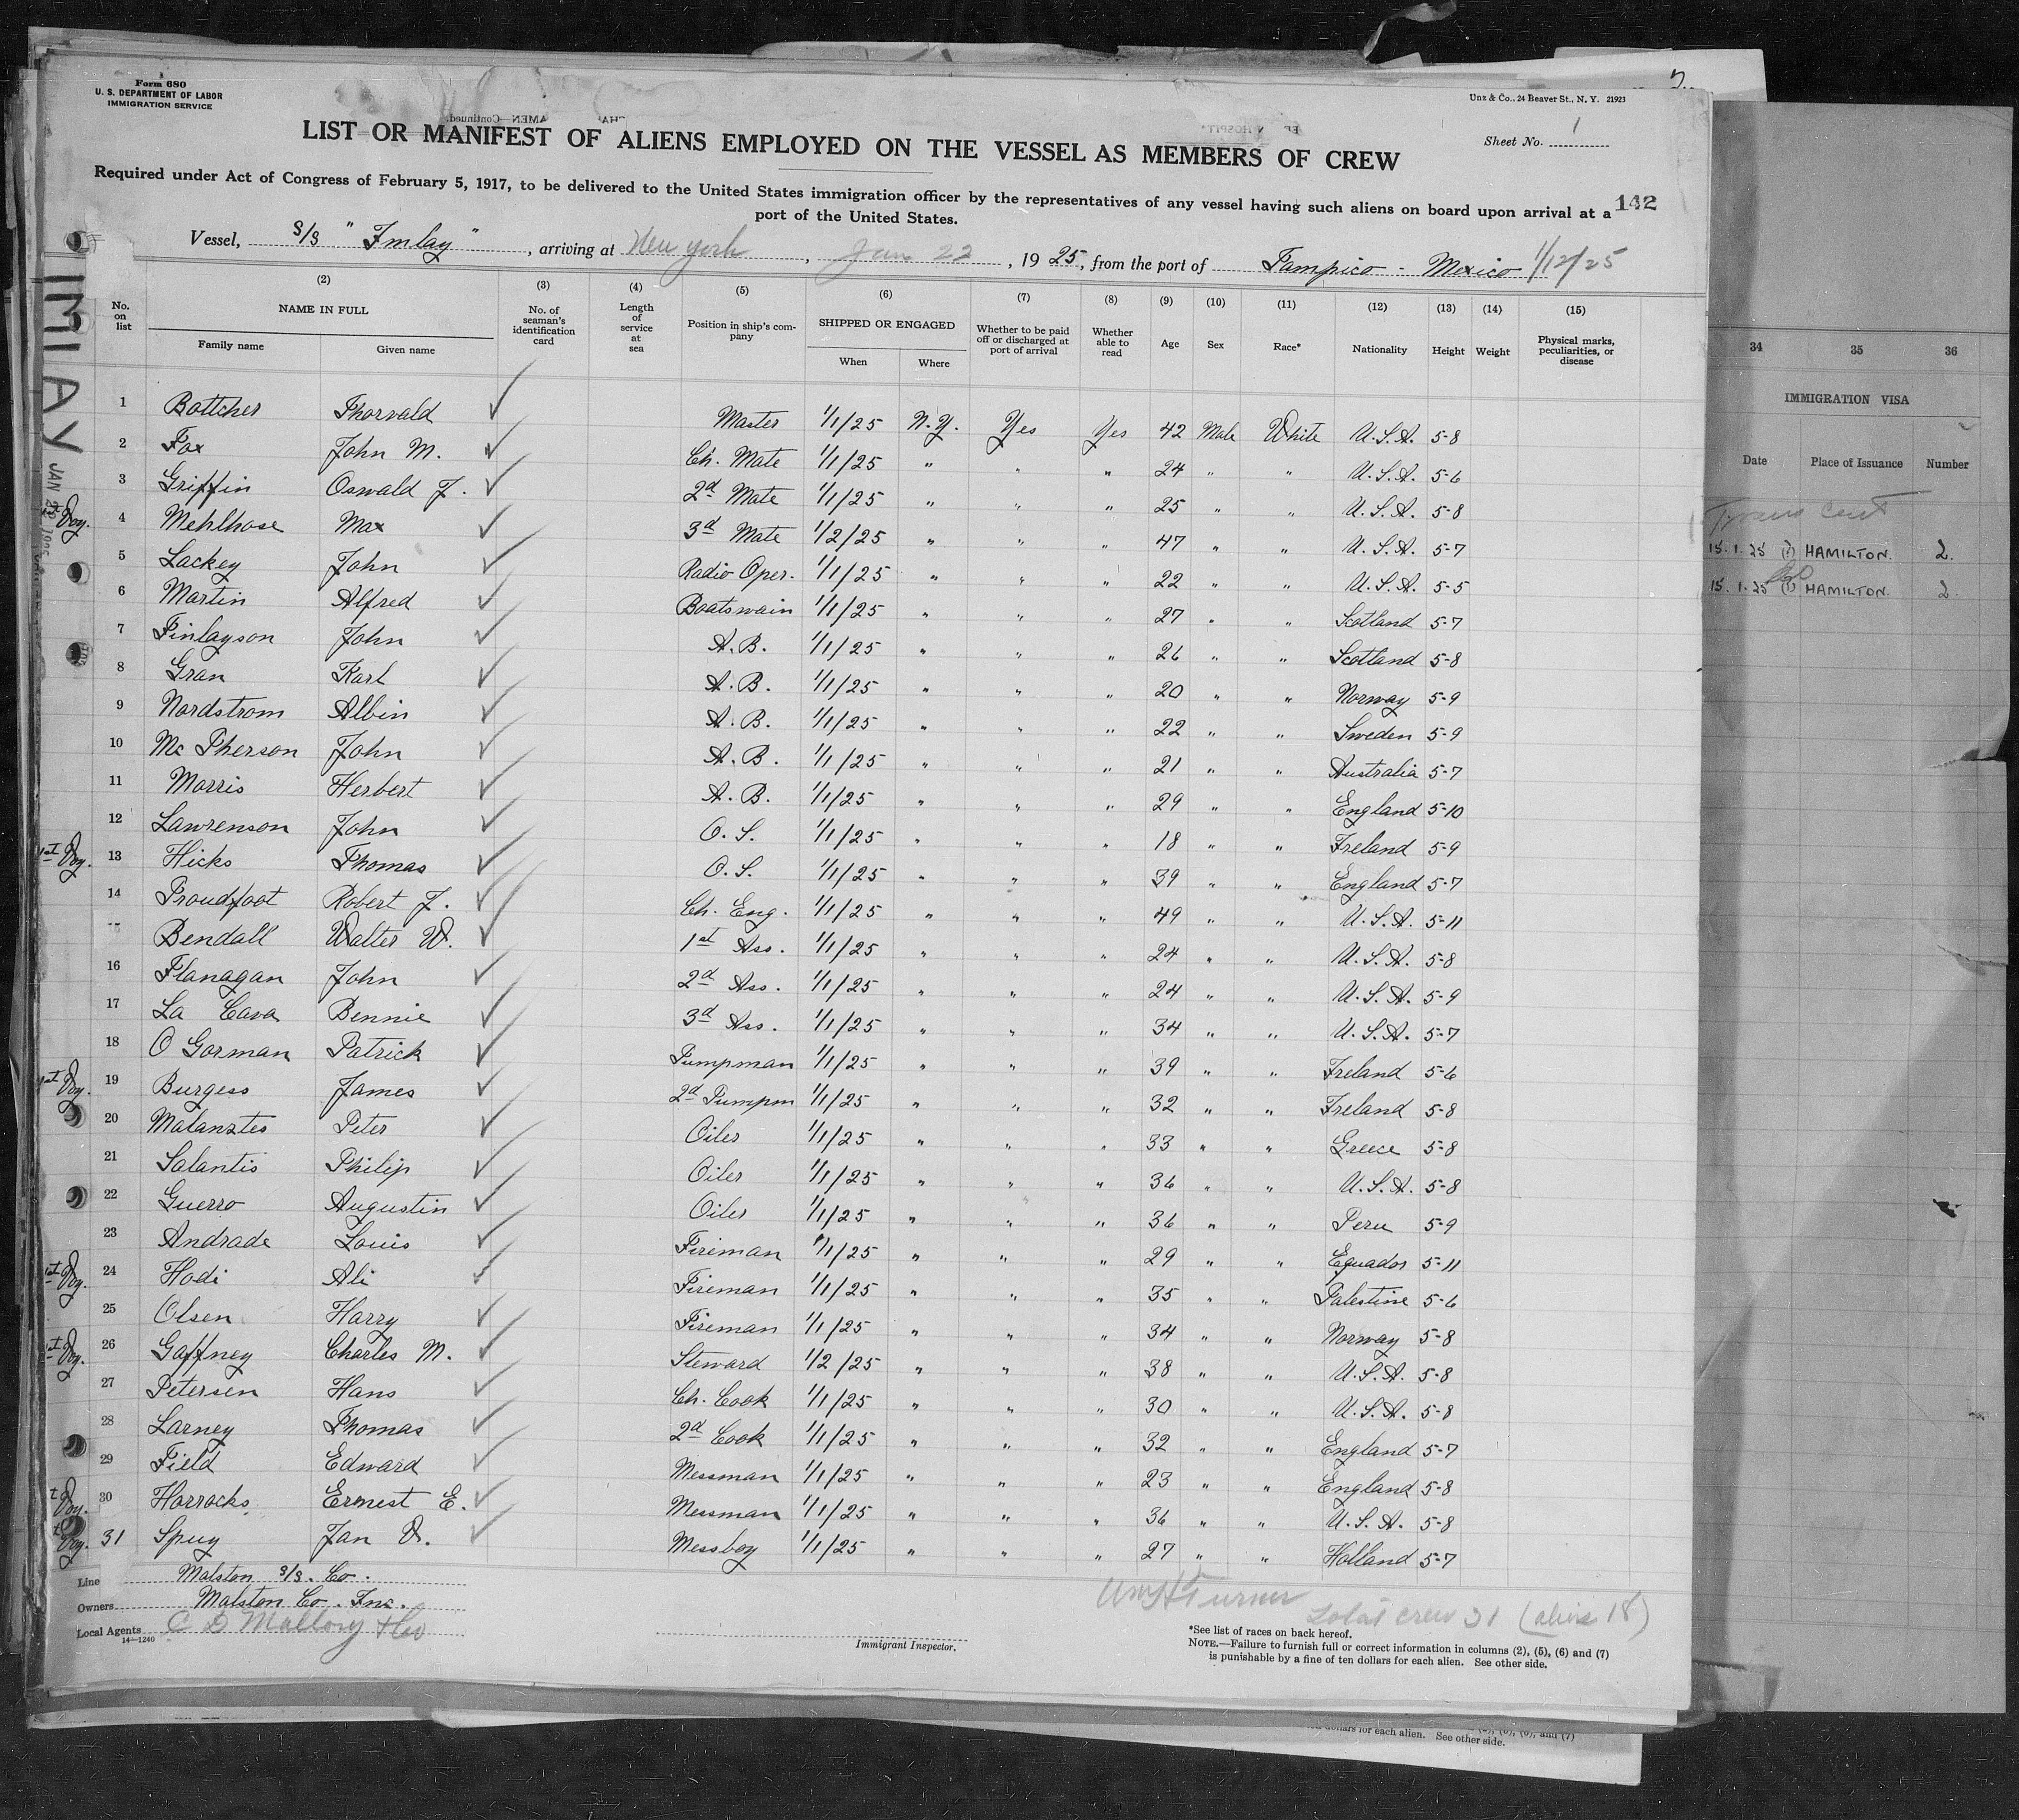 Form 680
U. S. DEPARTMENT OF LABOR
IMMIGRATION SERVICE
Unz & Co., 24 Beaver St., N. Y. 21923
LIST OR MANIFEST OF ALIENS EMPLOYED ON THE VESSEL AS MEMBERS OF CREW
Sheet No. 1
Required under Act of Congress of February 5, 1917, to be delivered to the United States immigration officer by the representatives of any vessel having such aliens on board upon arrival at a
port of the United States.
142
Vessel, S/S "Imlay", arriving at New York, Jan 22, 1925, from the port of Tampico - Mexico 1/12/25
IMLAY JAN 22 1925
(2) (3) (4) (5) (6) (7) (8) (9) (10) (11) (12) (13) (14) (15)
No. on list NAME IN FULL No. of seaman's identification card Length of service at sea Position in ship's company SHIPPED OR ENGAGED Whether to be paid off or discharged at port of arrival Whether able to read Age Sex Race* Nationality Height Weight Physical marks, peculiarities, or disease
Family name Given name When Where
1 Bottcher Thorvald Master 1/1/25 N.Y. Yes Yes 42 Male White U.S.A. 5-8
2 Fox John M. Ch. Mate 1/1/25 " " " 24 " " U.S.A. 5-6
3 Griffin Oswald J. 2d Mate 1/1/25 " " " 25 " " U.S.A. 5-8
Voy. 4 Mehlhose Max 3d Mate 1/2/25 " " " 47 " " U.S.A. 5-7
5 Lackey John Radio Oper. 1/1/25 " " " 22 " " U.S.A. 5-5
6 Martin Alfred Boatswain 1/1/25 " " " 27 " " Scotland 5-7
7 Finlayson John A.B. 1/1/25 " " " 26 " " Scotland 5-8
8 Gran Karl A.B. 1/1/25 " " " 20 " " Norway 5-9
9 Nordstrom Albin A.B. 1/1/25 " " " 22 " " Sweden 5-9
10 Mc Pherson John A.B. 1/1/25 " " " 21 " " Australia 5-7
11 Morris Herbert A.B. 1/1/25 " " " 29 " " England 5-10
12 Lawrenson John O.S. 1/1/25 " " " 18 " " Ireland 5-9
1st Voy. 13 Hicks Thomas O.S. 1/1/25 " " " 39 " " England 5-7
14 Proudfoot Robert J. Ch. Eng. 1/1/25 " " " 49 " " U.S.A. 5-11
Bendall Walter W. 1st Ass. 1/1/25 " " " 24 " " U.S.A. 5-8
16 Flanagan John 2d Ass. 1/1/25 " " " 24 " " U.S.A. 5-9
17 La Cava Bennie 3d Ass. 1/1/25 " " " 34 " " U.S.A. 5-7
18 O Gorman Patrick Pumpman 1/1/25 " " " 39 " " Ireland 5-6
1st Voy. 19 Burgess James 2d Pumpm 1/1/25 " " " 32 " " Ireland 5-8
20 Matanztes Peter Oiler 1/1/25 " " " 33 " " Greece 5-8
21 Salantis Philip Oiler 1/1/25 " " " 36 " " U.S.A. 5-8
22 Guerro Augustin Oiler 1/1/25 " " " 36 " " Peru 5-9
23 Andrade Louis Fireman 1/1/25 " " " 29 " " Equador 5-11
1st Voy. 24 Hodi Ali Fireman 1/1/25 " " " 35 " " Palestine 5-6
25 Olsen Harry Fireman 1/1/25 " " " 34 " " Norway 5-8
1st Voy. 26 Gaffney Charles M. Steward 1/2/25 " " " 38 " " U.S.A. 5-8
27 Petersen Hans Ch. Cook 1/1/25 " " " 30 " " U.S.A. 5-8
28 Larney Thomas 2d Cook 1/1/25 " " " 32 " " England 5-7
29 Field Edward Messman 1/1/25 " " " 23 " " England 5-8
Voy. 30 Horrocks Ernest E. Messman 1/1/25 " " " 36 " " U.S.A. 5-8
Voy. 31 Spuy Jan V. Messboy 1/1/25 " " " 27 " " Holland 5-7
Line Malston S/S. Co.
Owners Malston Co. Inc.
Local Agents C D Mallory & Co
14-1240
Wm H Turner
Immigrant Inspector.
Total crew 31 (aliens 18)
*See list of races on back hereof.
NOTE.—Failure to furnish full or correct information in columns (2), (5), (6) and (7)
is punishable by a fine of ten dollars for each alien. See other side.
34 35 36
IMMIGRATION VISA
Date Place of Issuance Number
15.1.25 HAMILTON. 2.
15.1.25 HAMILTON. 2.
dollars for each alien. See other side.